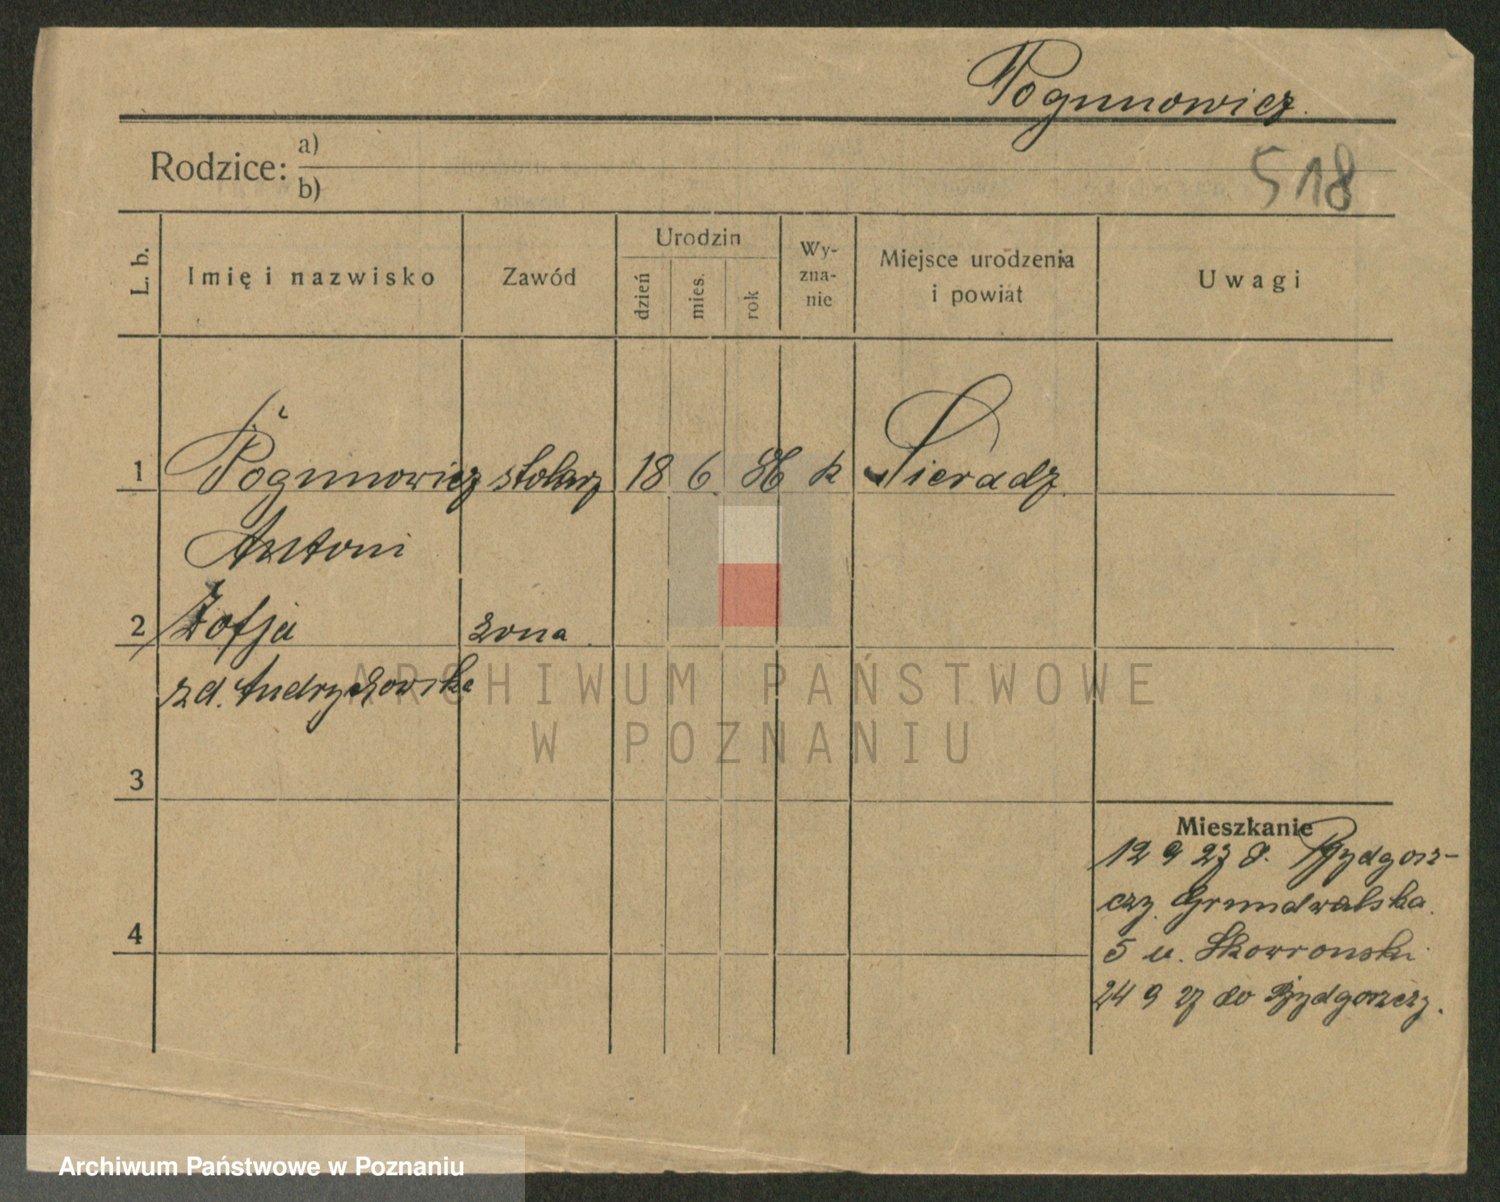 Pogunowicz.
518
Rodzice: a)
b)
L. b.
Imię i nazwisko
Zawód
Urodzin
dzień
mies.
rok
Wy-
zna-
nie
Miejsce urodzenia
i powiat
Uwagi
1 Pogunowicz stolarz 18 6. 86 k Sieradz.
Antoni
2 Zofja żona.
zd. Andrychowska
3
4
Mieszkanie
12 9 27 z Bydgosz-
czy. Grunwalska.
5 u. Skowronski
24 9 27 do Bydgoszczy.
ARCHIWUM PAŃSTWOWE
W POZNANIU
Archiwum Państwowe w Poznaniu